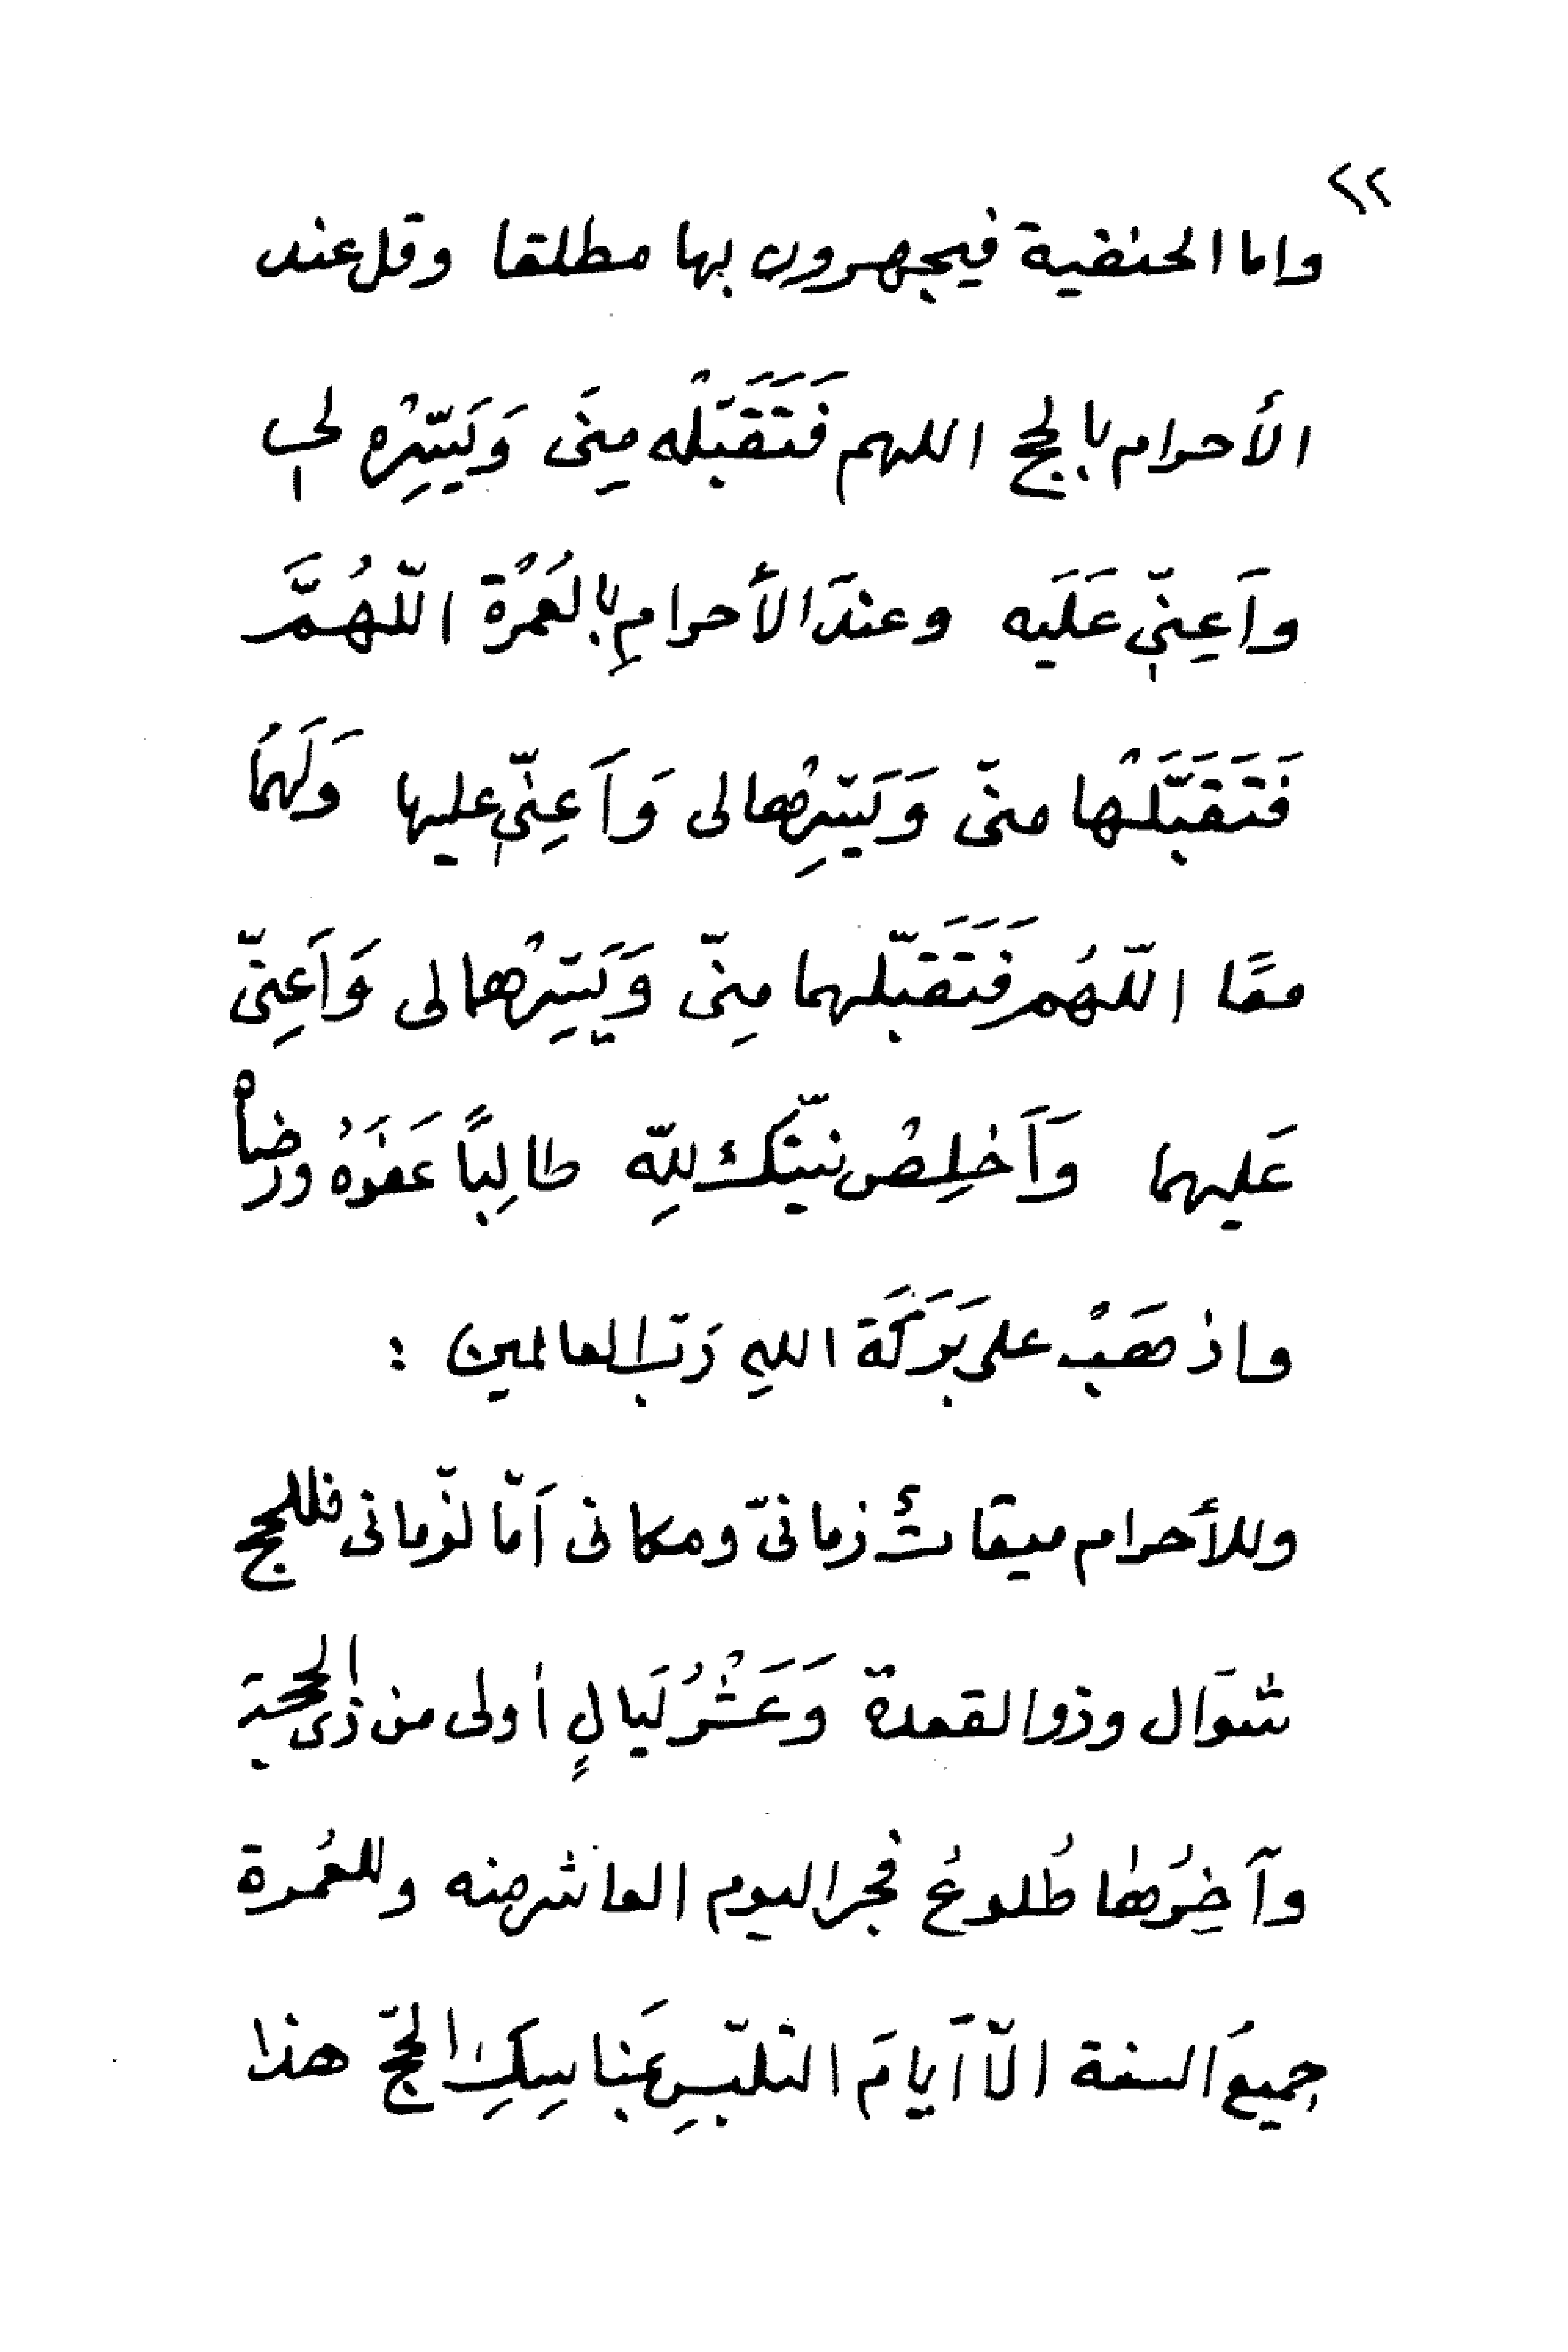 ٢٢
واما الحنفية فيجهرون بها مطلقا وقل عند
الأحرام بالحج اللهم فَتَقَبَّلْه مِنَّى وَيَسِّرْه لى
وَاَعِنِّى عَلَيه وعندَ الأحرامِ بالعُمْرَة اللّهُمَّ
فَتَقَبَّلْها منّى وَيَسِّرْها لى وَاَعِنِّى عليها وَلَهُمَا
معًا اللّهُم فَتَقَبّلهما مِنّى وَيَسِّرْهما لى وَاَعِنّى
عَليهما وَاَخلِصْ نيّتك للهِ طالِبًا عَفوَهُ ورضاه
واذهَبْ على بَرَكَة اللهِ رَبّ العالمين :
وللأحرام ميقاتٌ زمانىّ ومكانى اَمّا لزّمانى فللحج
شوَال وذوالقعدة وَعَشْرُ لَيالٍ أولى من ذى الحجة
وآخِرُها طُلوعُ فجر اليوم العاشر منه وللعُمرة
جميعَ السنة الّا اَيامَ التلبّسِ بمَناسِكِ الحجّ هذا